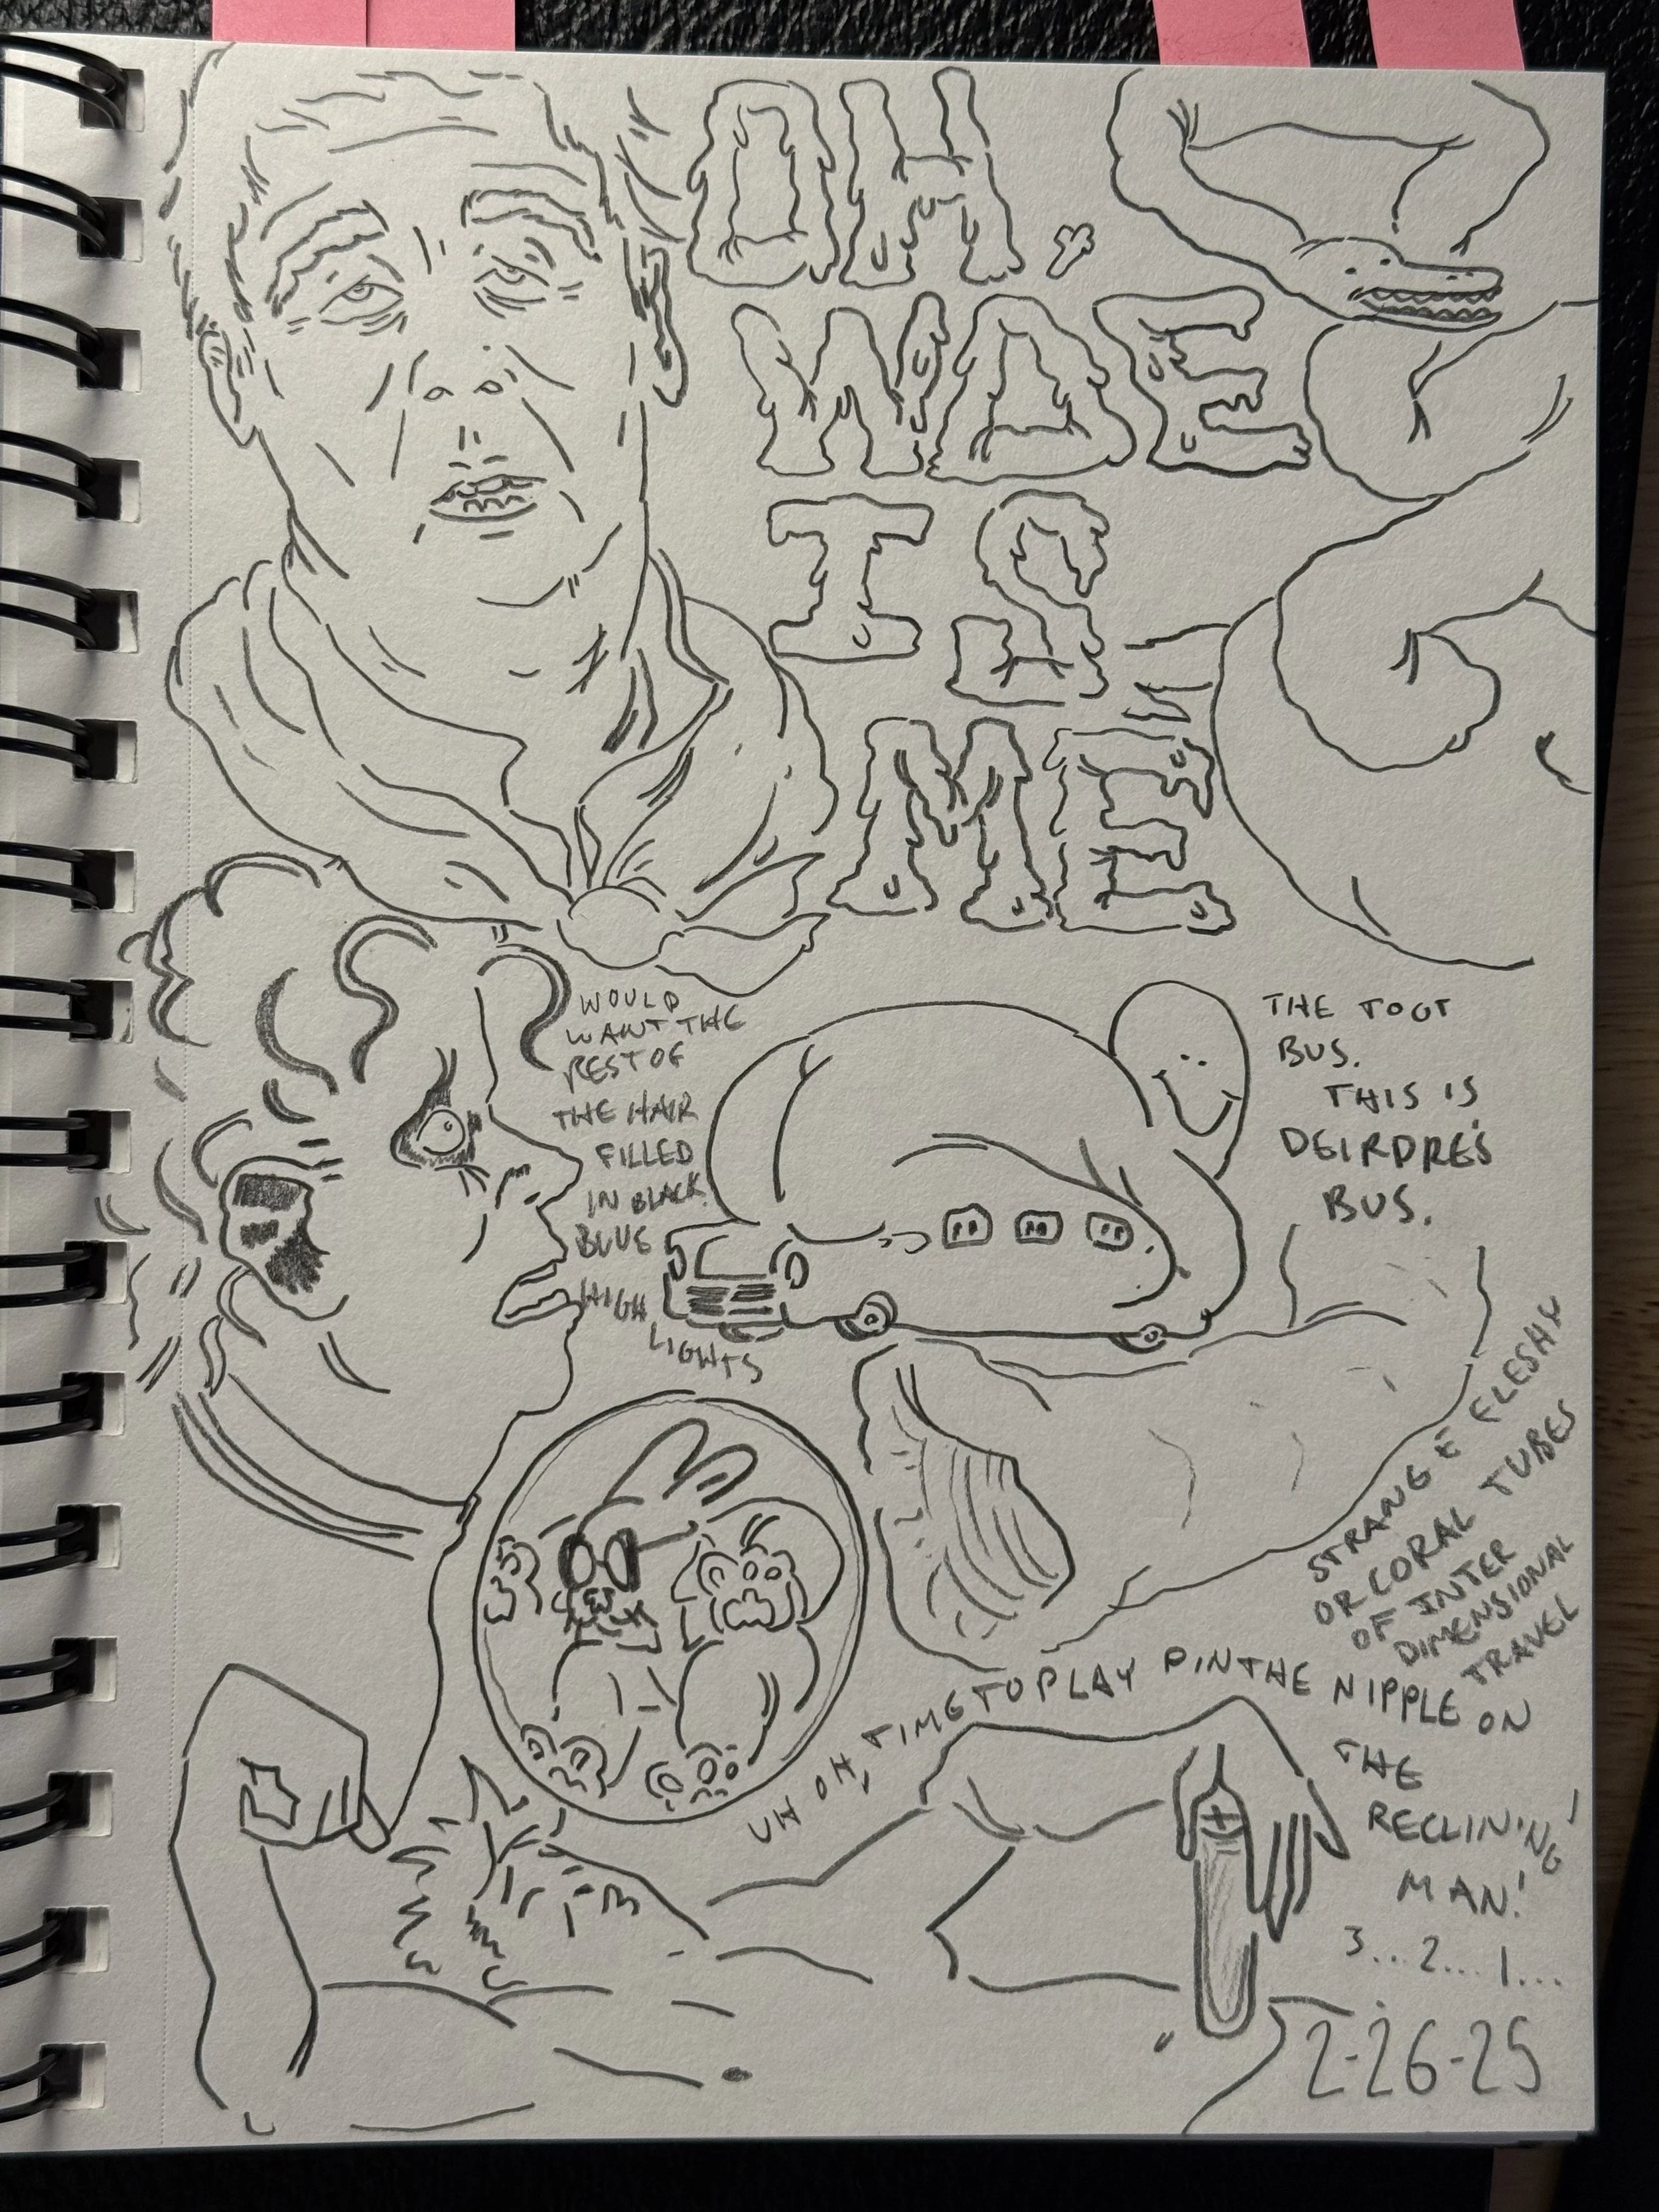 OH,
MAE
IS
ME
WOULD
WANT THE
REST OF
THE HAIR
FILLED
IN BLACK.
BLUE
HIGH
LIGHTS
THE TOOT
BUS.
THIS IS
DEIRDRE'S
BUS.
STRANGE FLESHY
OR CORAL TUBES
OF INTER
DIMENSIONAL
TRAVEL
UH OH, TIME TO PLAY PIN THE NIPPLE ON
THE
RECLINING
MAN!
3...2...1...
2-26-25